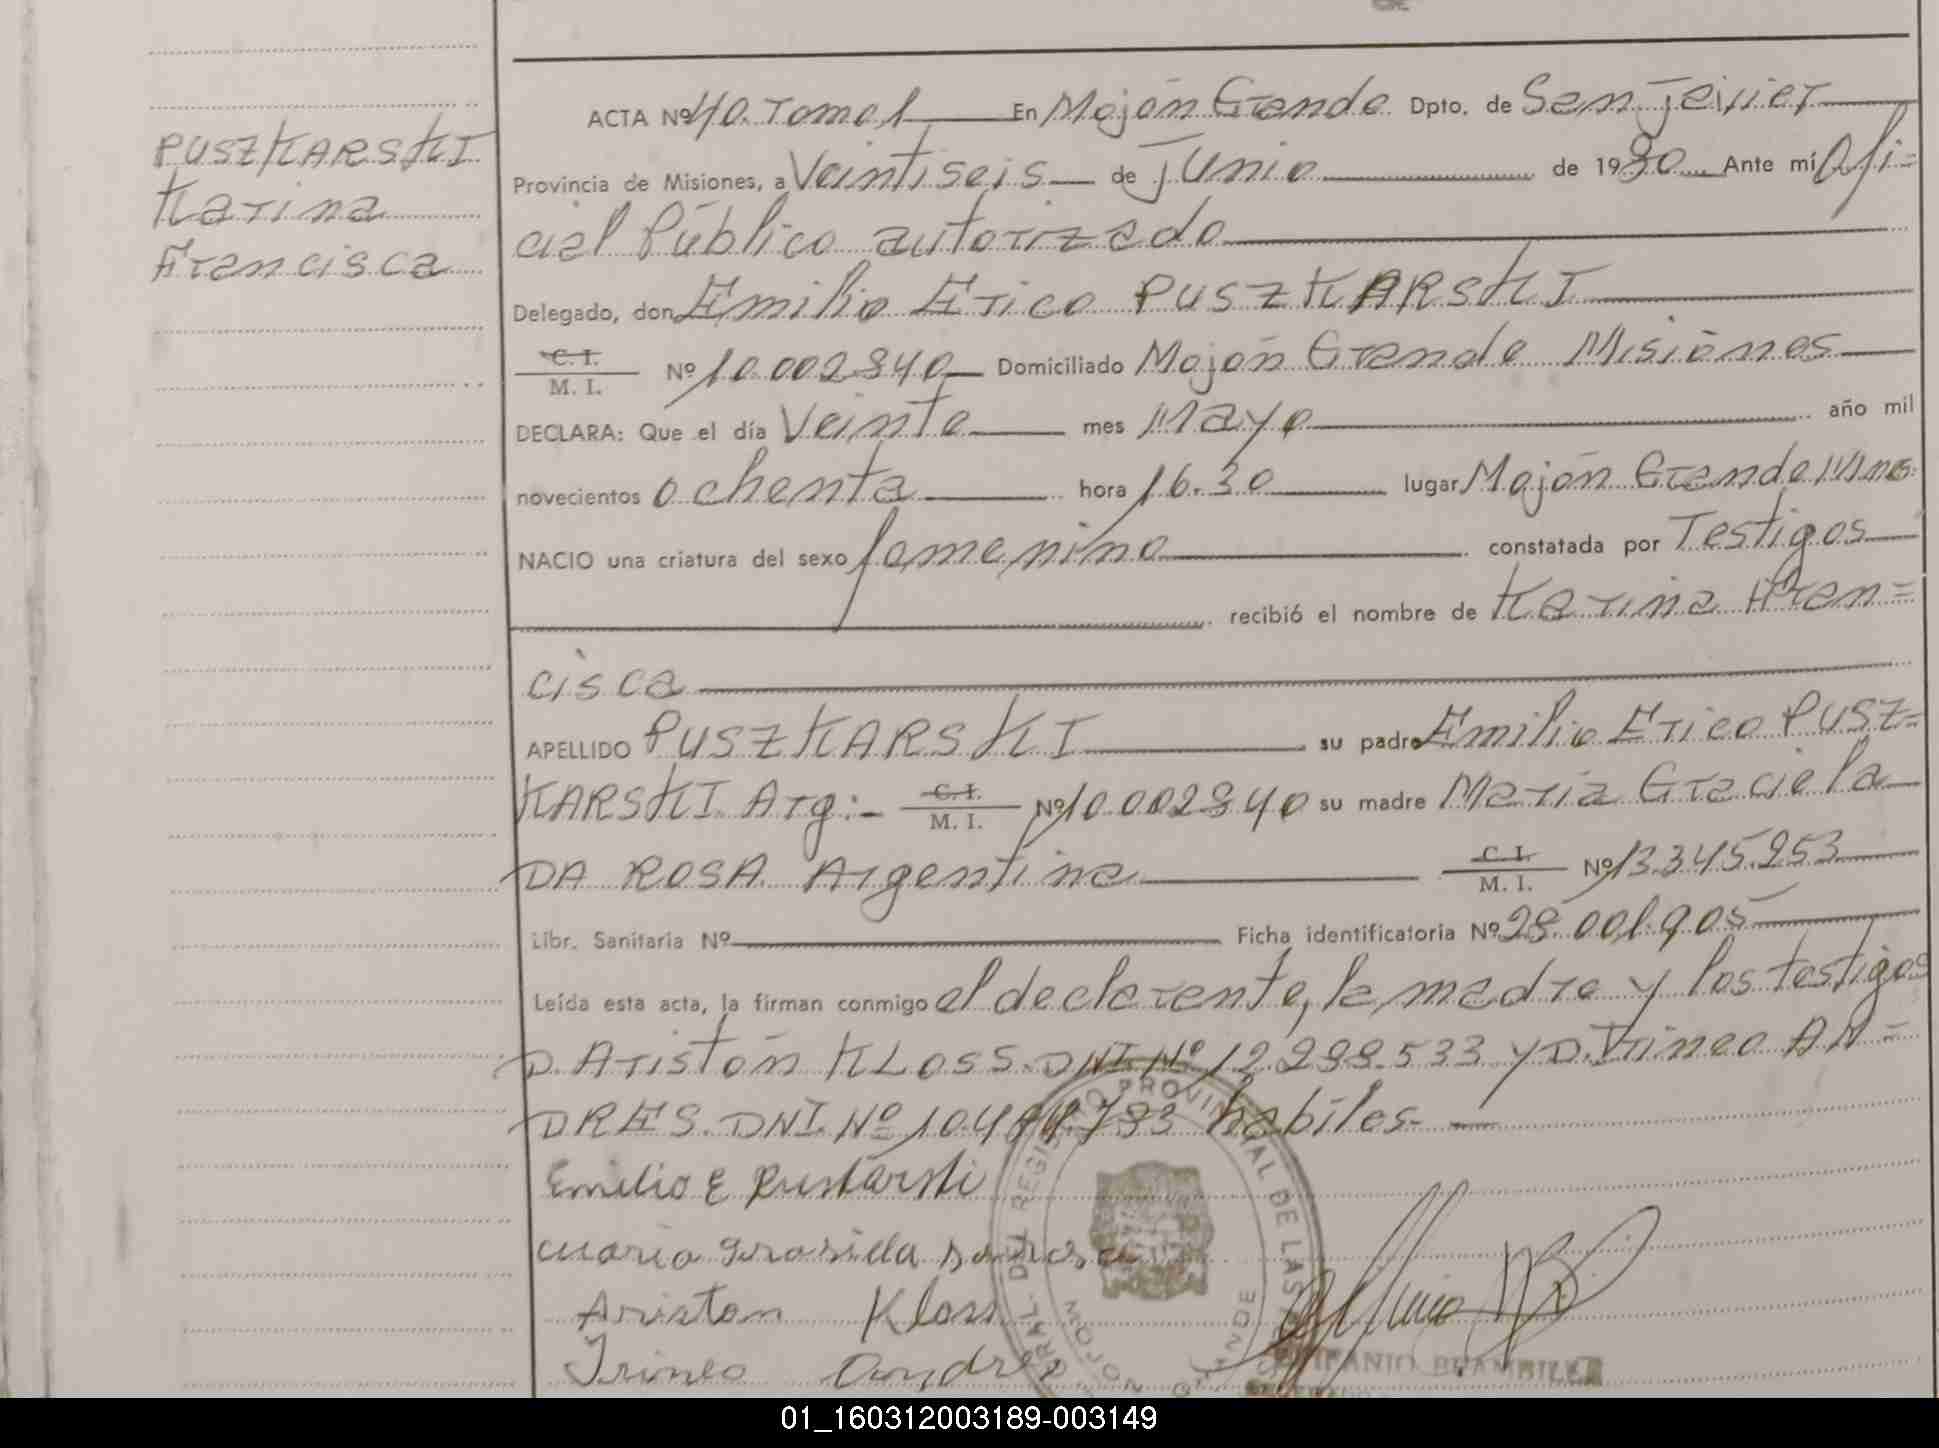 PUSZKARSKI
Karina
Francisca
ACTA Nº 40. Tomo 1 En Mojón Grande Dpto. de San Javier
Provincia de Misiones, a Veintiseis de Junio de 1980 Ante mí Ofi=
cial Público autorizado
Delegado, don Emilio Erico PUSZKARSKI
C. I.
M. I. Nº 10.002.840 Domiciliado Mojón Grande Misiones
DECLARA: Que el día Veinte mes Mayo año mil
novecientos ochenta hora 16.30 lugar Mojón Grande Mnes.
NACIO una criatura del sexo femenino constatada por Testigos
recibió el nombre de Karina Fran=
cisca
APELLIDO PUSZKARSKI su padre Emilio Erico PUSZ=
KARSKI Arg:- C. I.
M. I. Nº 10.002840 su madre María Graciela
DA ROSA Argentina C. I.
M. I. Nº 13.345.253
Libr. Sanitaria Nº Ficha identificatoria Nº 28.001.905
Leída esta acta, la firman conmigo el declarante, la madre y los testigos
D. Aristón KLOSS. DNI. Nº 12.298.533 y D. Irineo AN=
DRES. DNI. Nº habiles-
Emilio E Puskarski
Ariston Kloss
Irineo Andres
DEL REGISTRO PROVINCIAL DE LAS
MOJON GRANDE
01_160312003189-003149